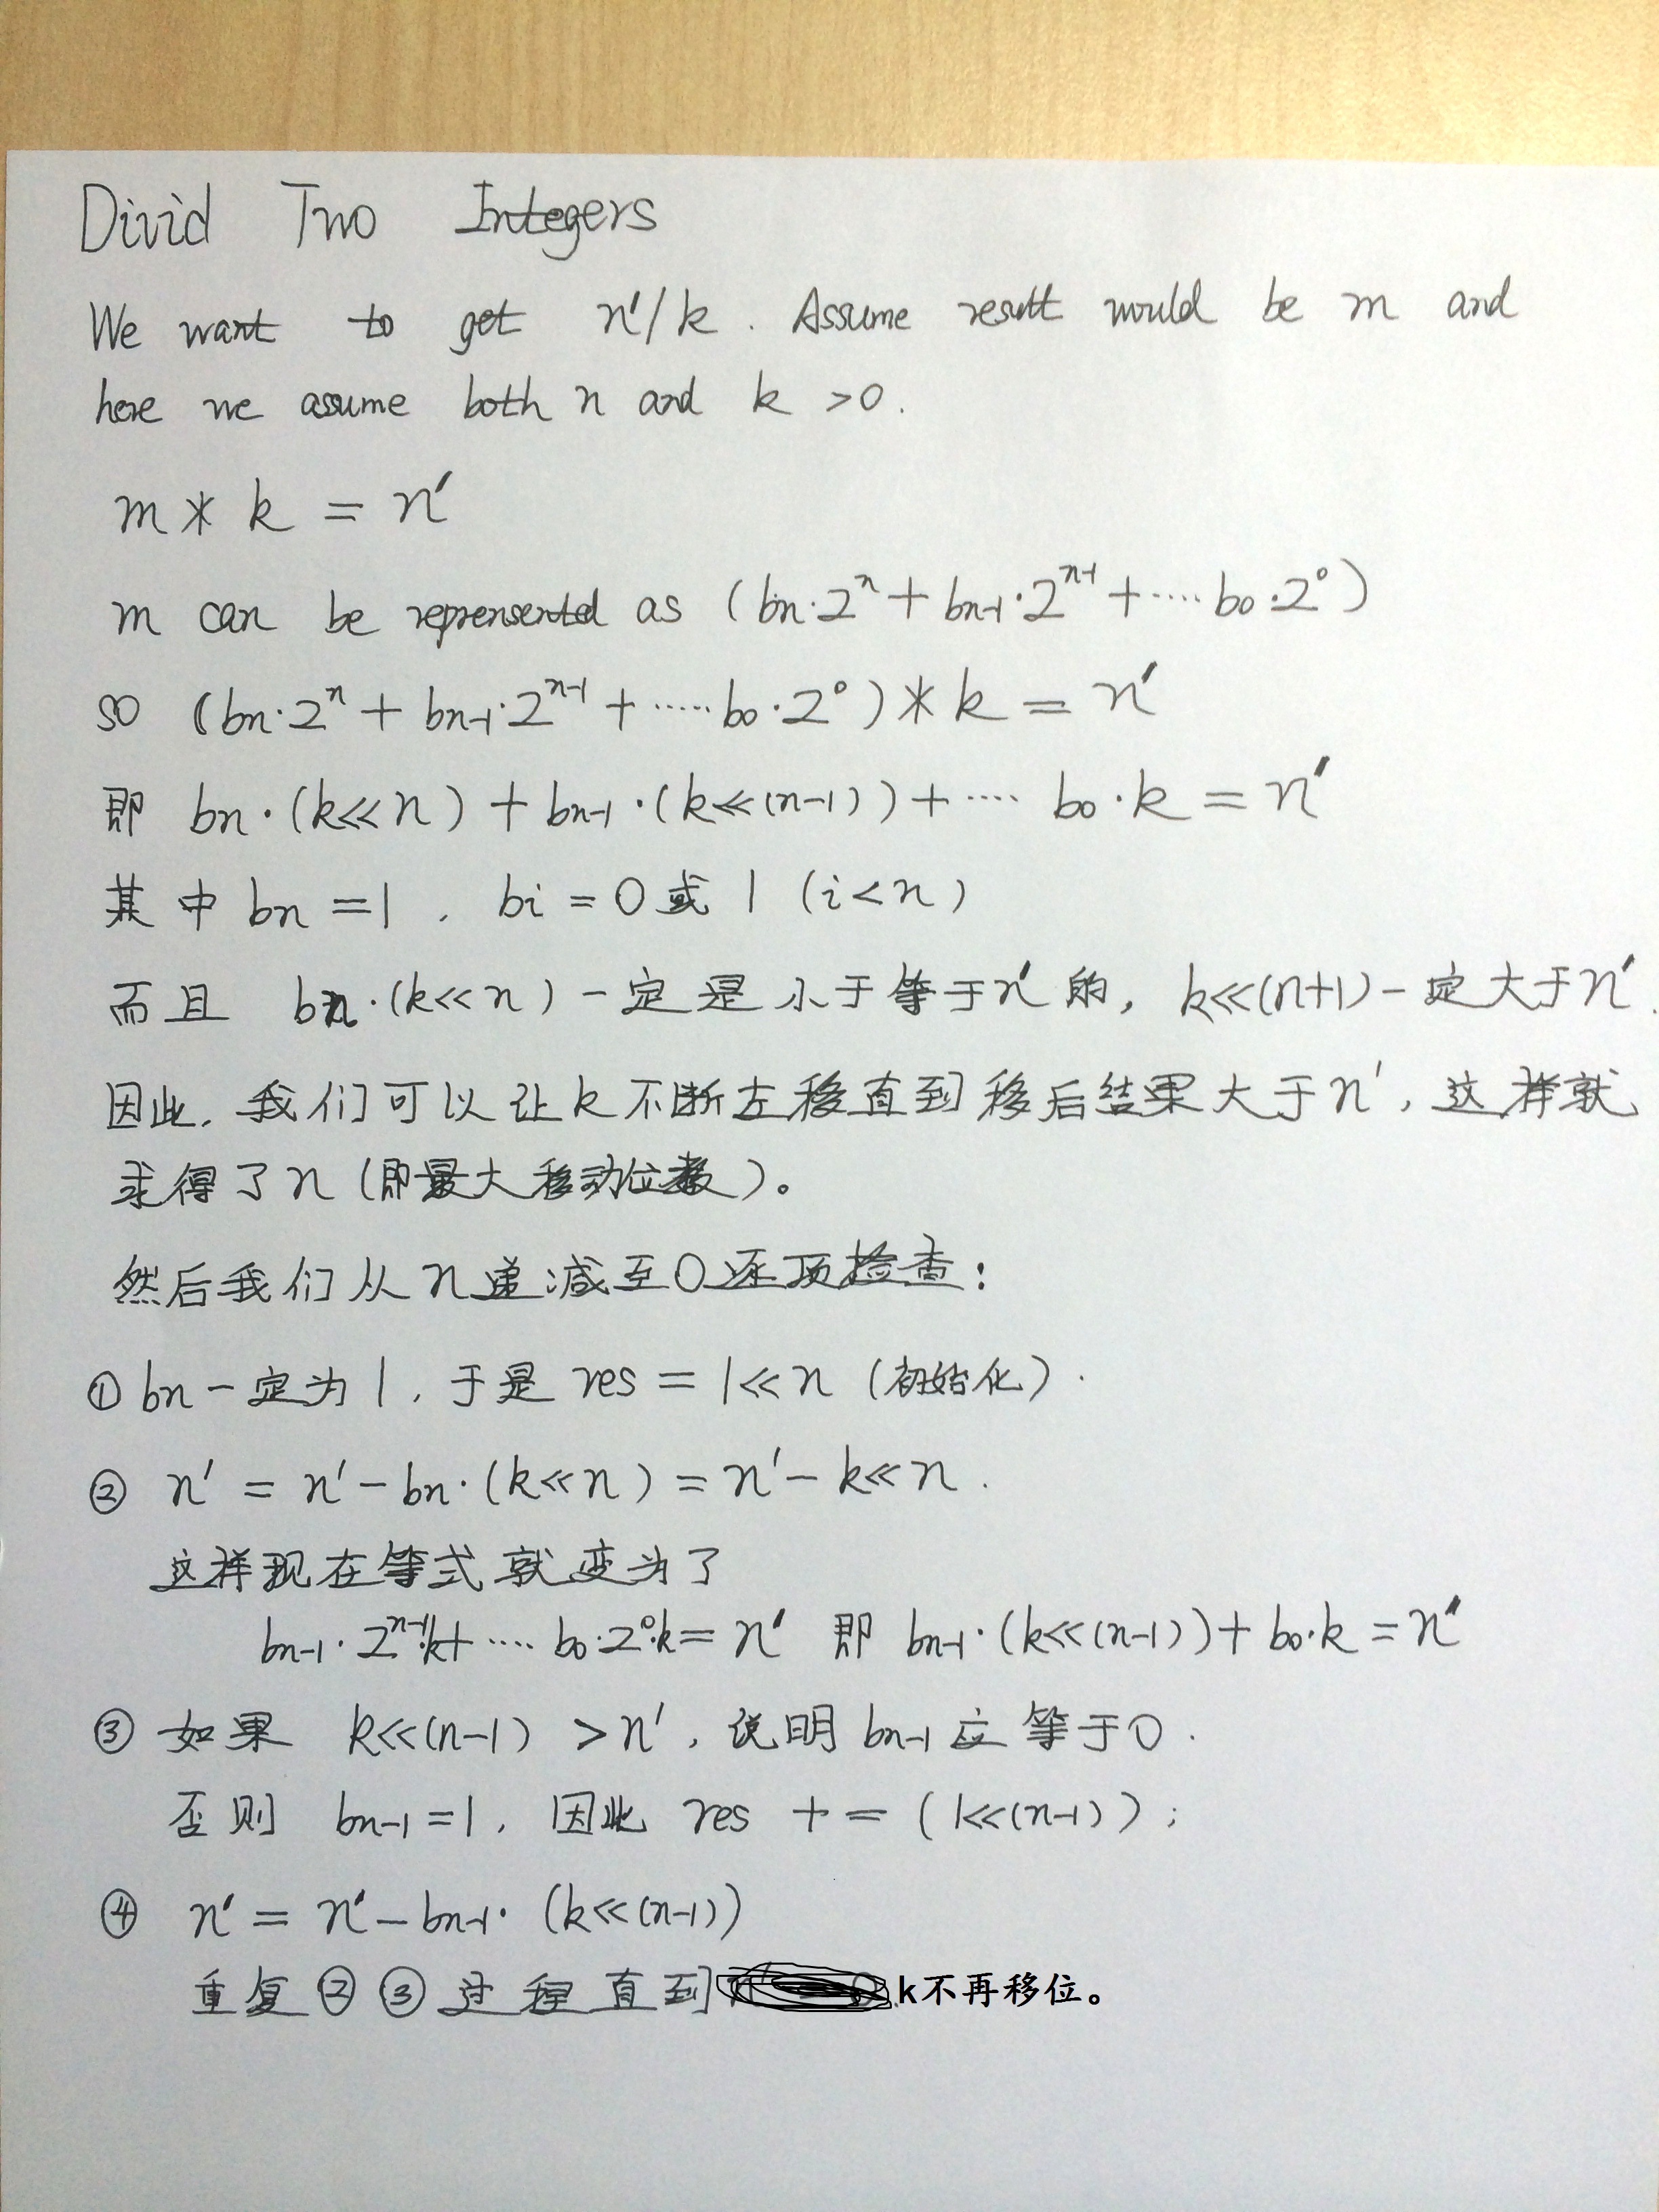 Divid Two Integers
We want to get n'/k. Assume result would be m and
here we assume both n and k >0.
m * k = n'
m can be reprensented as (bn·2^n + bn-1·2^n-1 + ····· b0·2^0)
so (bn·2^n + bn-1·2^n-1 + ····· b0·2^0) * k = n'
即 bn·(k<<n) + bn-1·(k<<(n-1)) + ···· b0·k = n'
其中 bn = 1, bi = 0 或 1 (i<n)
而且 bn·(k<<n) 一定是小于等于n'的, k<<(n+1) 一定大于n'.
因此, 我们可以让k不断左移直到移后结果大于n', 这样就
求得了n (即最大移动位数)。
然后我们从n递减至0逐项检查:
① bn一定为1, 于是 res = 1<<n (初始化).
② n' = n' - bn·(k<<n) = n' - k<<n.
这样现在等式就变为了
bn-1·2^n-1·k+ ···· b0·2^0·k = n' 即 bn-1·(k<<(n-1)) + b0·k = n'
③ 如果 k<<(n-1) > n', 说明 bn-1 应等于0.
否则 bn-1 = 1, 因此 res += (1<<(n-1));
④ n' = n' - bn-1·(k<<(n-1))
重复②③过程直到 k不再移位。